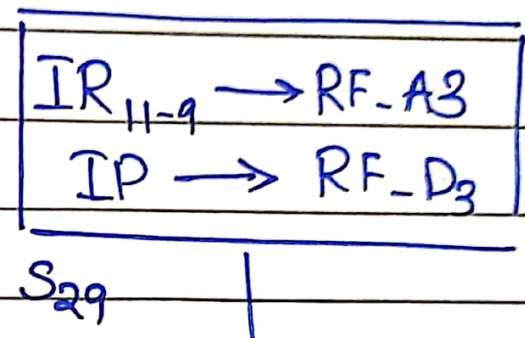 IR₁₁₋₉ → RF_A3
IP → RF_D₃
S₂₉